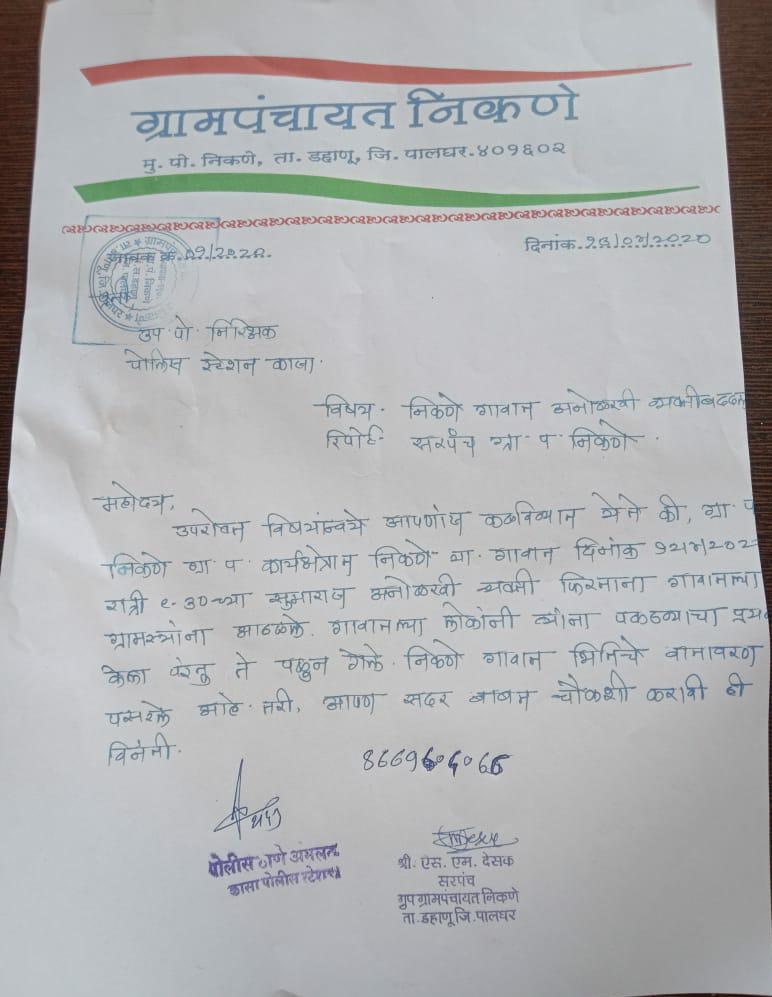 ग्रामपंचायत निकणे
मु. पो. निकणे, ता. डहाणू, जि. पालघर.४०१६०२
जावक क्र.
दिनांक.
उप पो निरिक्षक
पोलिस स्टेशन कासा.
विषय. निकणे गावात अनोळखी व्यक्तीबद्दल
रिपोर्ट- सरपंच ग्रा प निकणे.
महोदय,
उपरोक्त विषयांन्वये आपणांस कळविण्यात येते की, ग्रा प
निकणे ग्रा प कार्यक्षेत्रात निकणे या गावात दिनांक
रात्री ९-३०च्या सुमारास अनोळखी व्यक्ती फिरताना गावातल्या
ग्रामस्थांना आढळले. गावातल्या लोकांनी त्यांना पकडण्याचा
केला परंतु ते पळून गेले. निकणे गावात भितिचे वातावरण
पसरले आहे. तरी, आपण सदर बाबत चौकशी करावी ही
विनंती.
पोलीस ठाणे अंमलदार
कासा पोलीस स्टेशन
श्री. एस. एम. देसक
सरपंच
ग्रुप ग्रामपंचायत निकणे
ता. डहाणू जि. पालघर